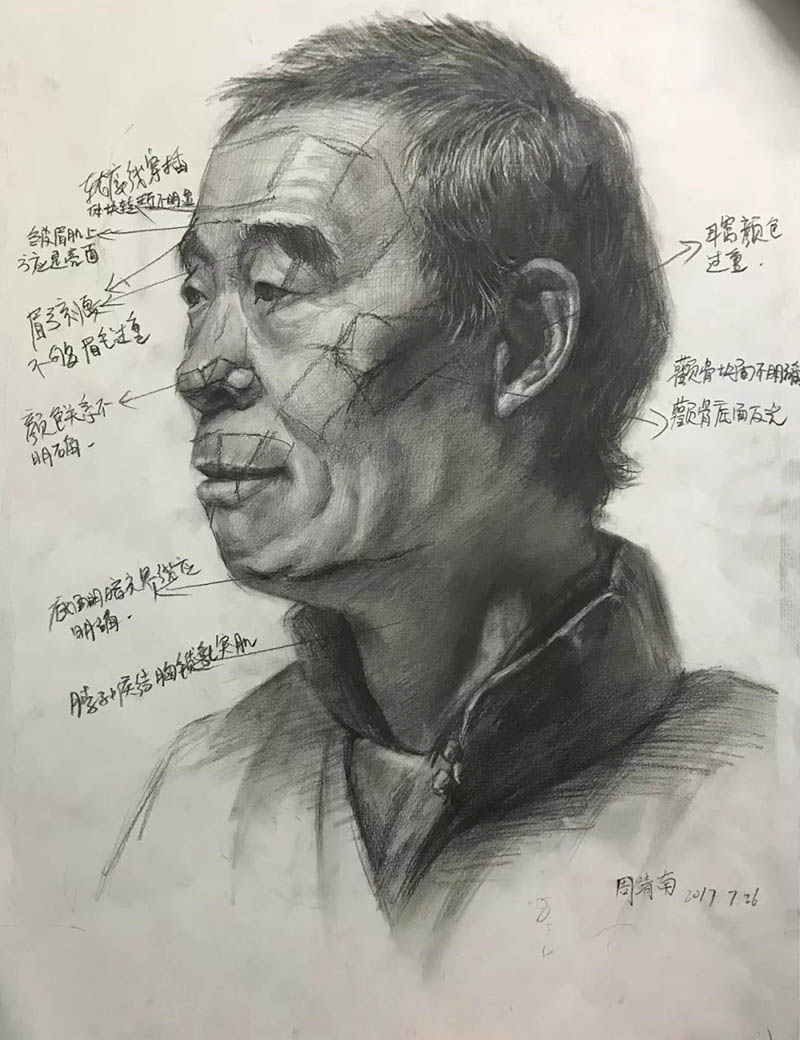 转折线穿插
体块转折不明显
皱眉肌上
方应是亮面
眉弓刻画
不够 眉毛过重
颜色关系不
明确.
底面明暗交界线应
明确.
脖子喉结胸锁乳突肌
耳窝颜色
过重.
颧骨块面不明确
颧骨底面反光
周靖南 2017.7.26